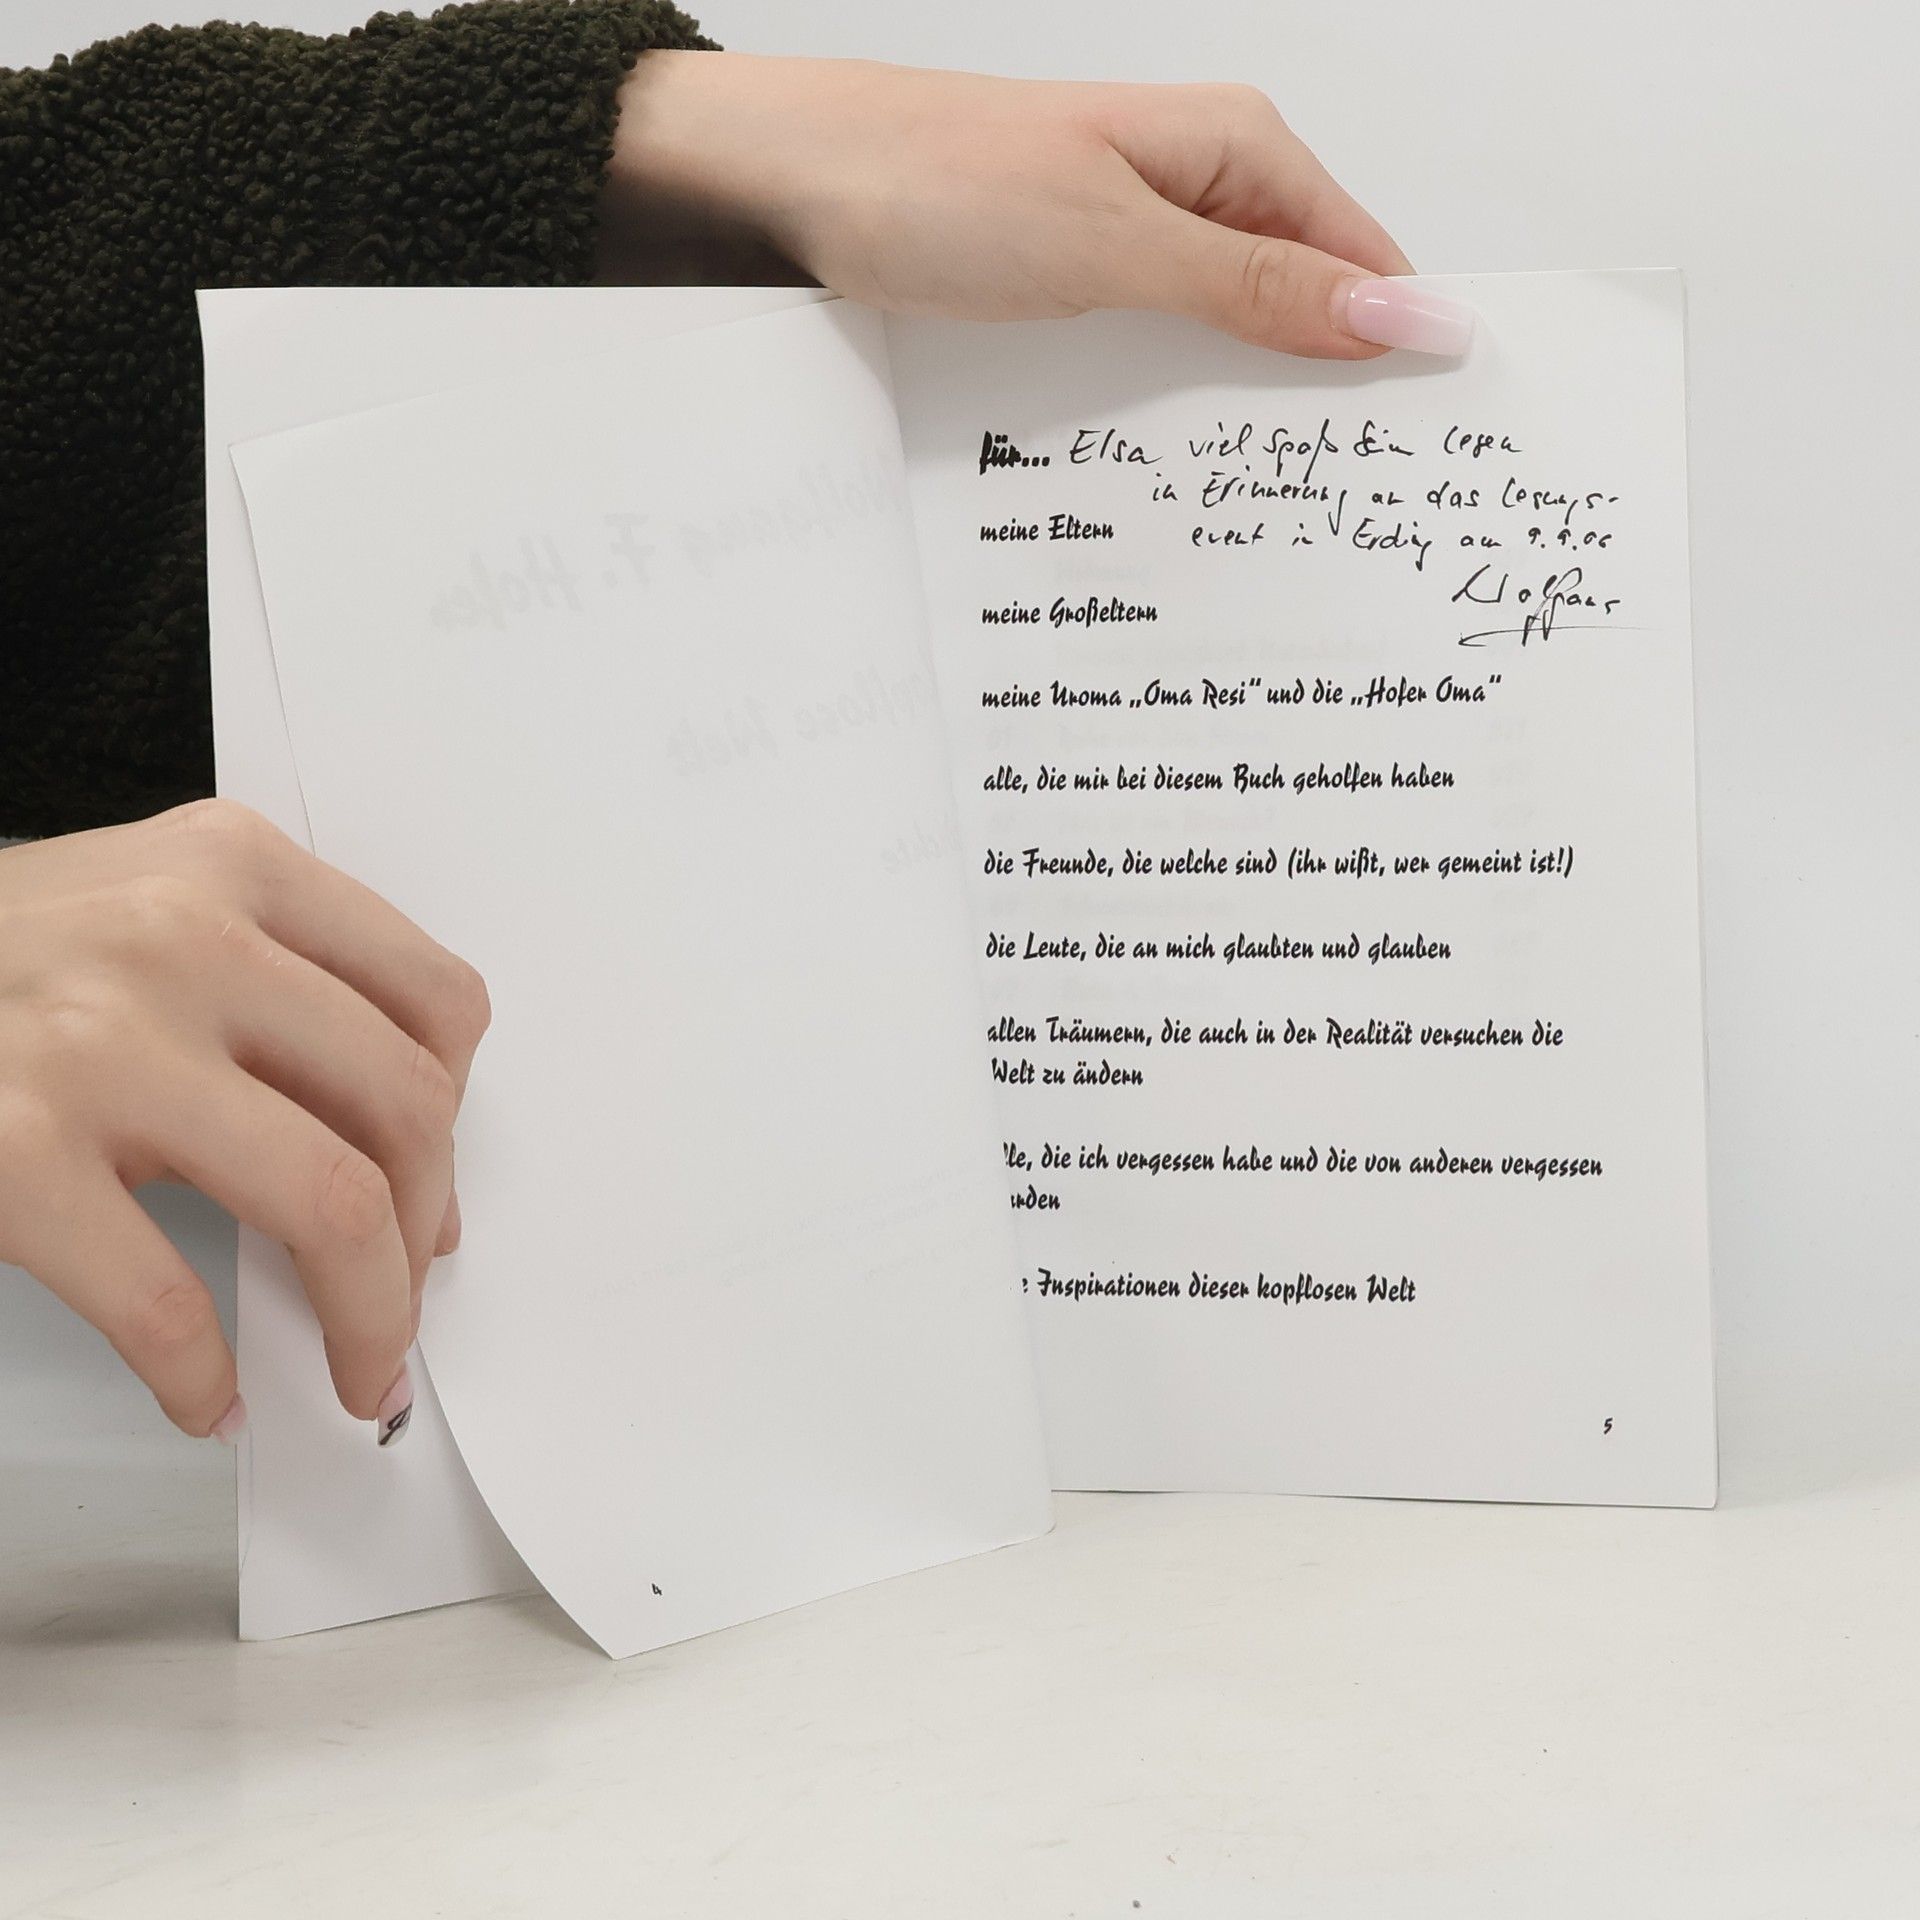 für... Elsa viel Spaß beim Lesen
in Erinnerung an das Lesungs-
event in Erding am 9.9.06
Wolfgang
meine Eltern
meine Großeltern
meine Uroma „Oma Resi“ und die „Hofer Oma“
alle, die mir bei diesem Buch geholfen haben
die Freunde, die welche sind (ihr wißt, wer gemeint ist!)
die Leute, die an mich glaubten und glauben
allen Träumern, die auch in der Realität versuchen die
Welt zu ändern
lle, die ich vergessen habe und die von anderen vergessen
rden
e Inspirationen dieser kopflosen Welt
5
4